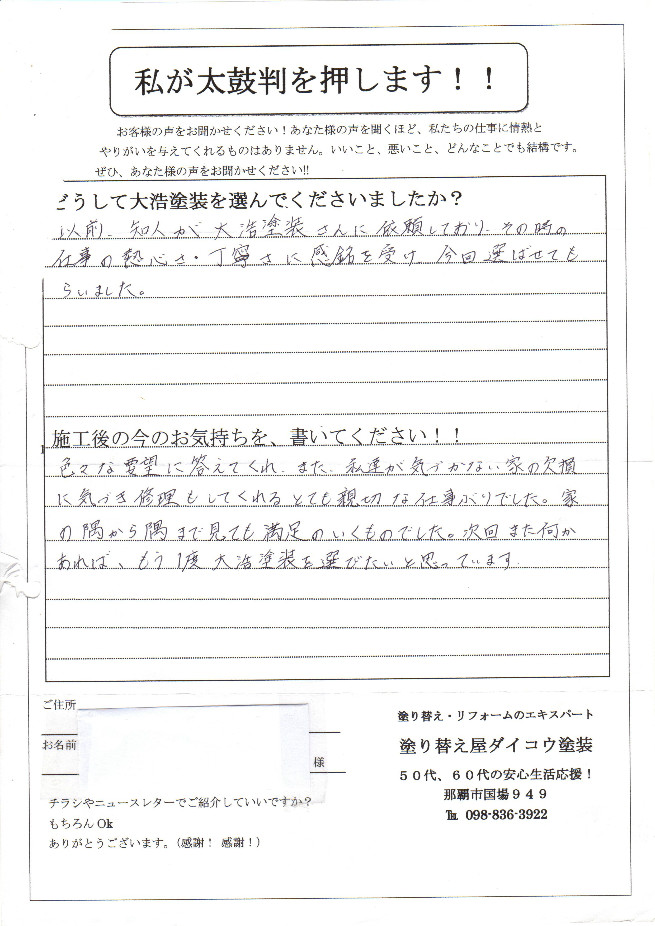 私が太鼓判を押します！！
お客様の声をお聞かせください！あなた様の声を聞くほど、私たちの仕事に情熱と
やりがいを与えてくれるものはありません。いいこと、悪いこと、どんなことでも結構です。
ぜひ、あなた様の声をお聞かせください!!
どうして大浩塗装を選んでくださいましたか？
以前、知人が大浩塗装さんに依頼しており、その時の
仕事の熱心さ・丁寧さに感銘を受け 今回選ばせても
らいました。
施工後の今のお気持ちを、書いてください！！
色々な要望に答えてくれ、また、私達が気づかない家の欠損
に気づき修理もしてくれるとても親切な仕事ぶりでした。家
の隅から隅まで見ても満足のいくものでした。次回また何か
あれば、もう1度大浩塗装を選びたいと思っています
ご住所
お名前
様
チラシやニュースレターでご紹介していいですか？
もちろん Ok
ありがとうございます。（感謝！ 感謝！）
塗り替え・リフォームのエキスパート
塗り替え屋ダイコウ塗装
５０代、６０代の安心生活応援！
那覇市国場９４９
℡ 098-836-3922